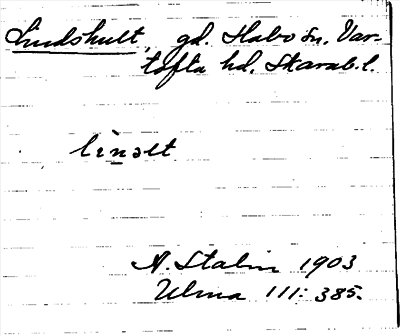 Lindshult, gd. Habo sn. Var-
tofta hd. Skarab.l.
linəlt
A. Stalin 1903
Ulma 111: 385.